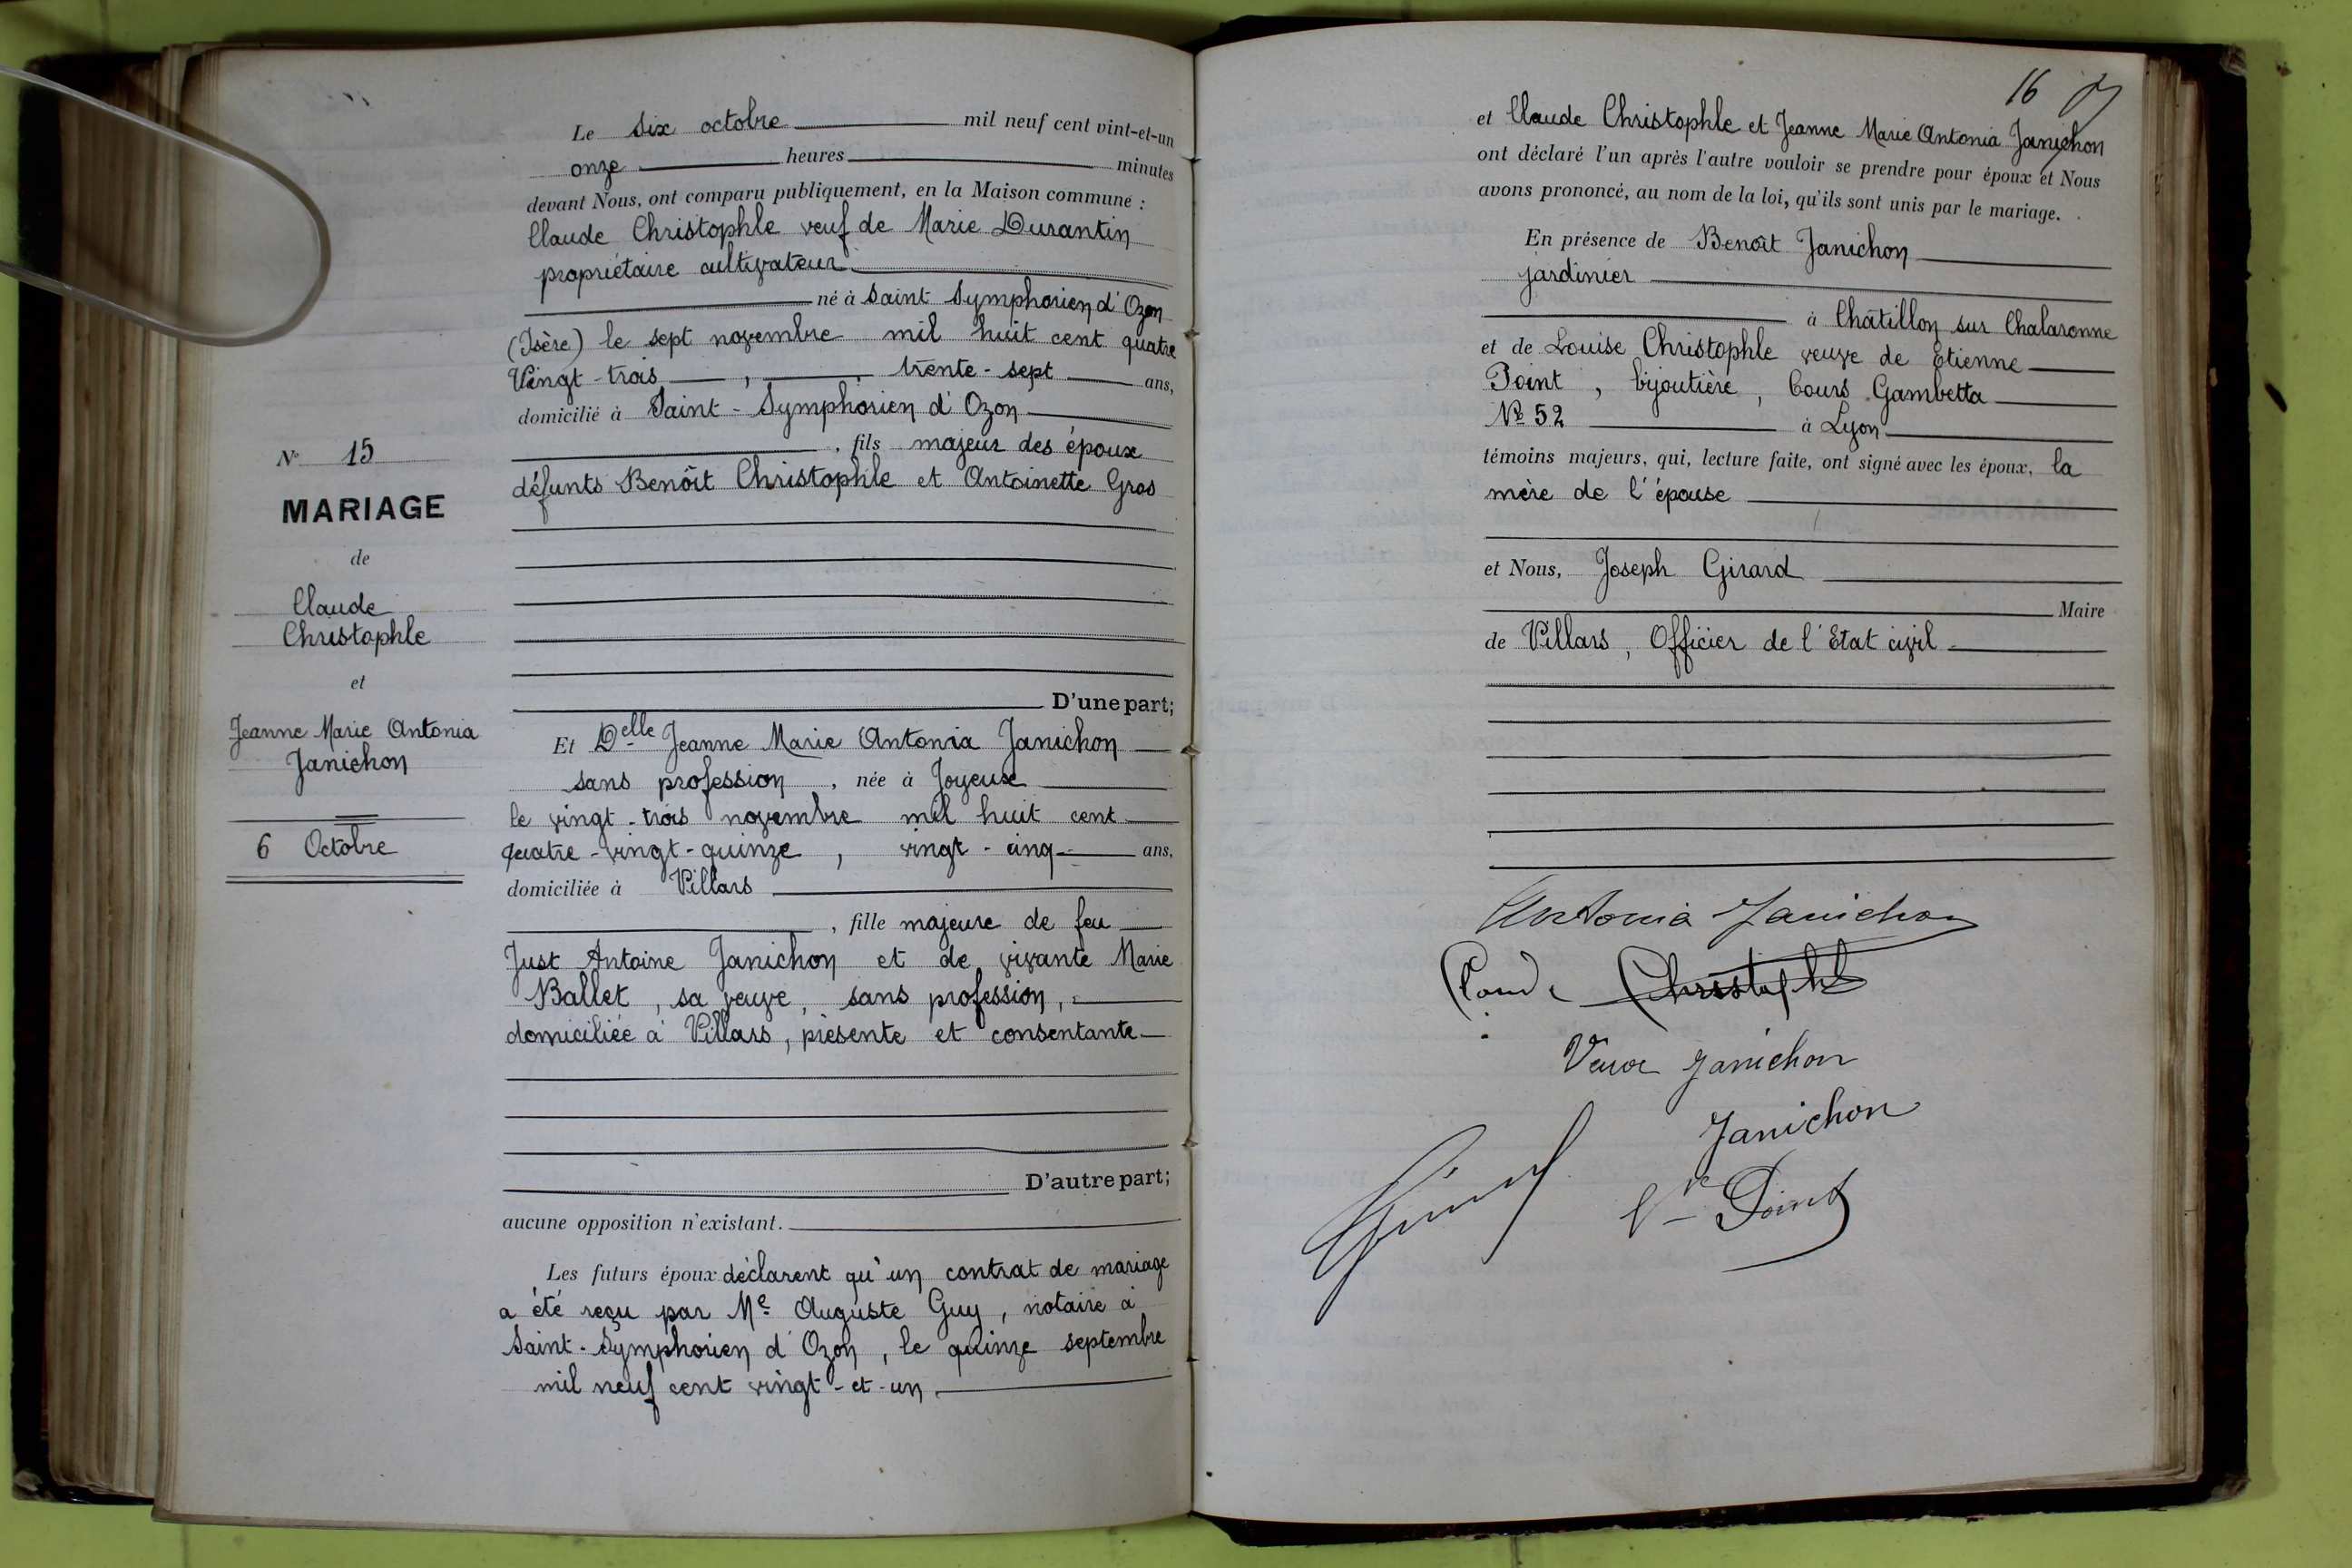 N° 15
MARIAGE
de
Claude
Christophle
et
Jeanne Marie Antonia
Janichon
6 Octobre
Le six octobre mil neuf cent vint-et-un
onze heures minutes
devant Nous, ont comparu publiquement, en la Maison commune :
Claude Christophle veuf de Marie Durantin
propriétaire cultivateur
né à Saint Symphorien d'Ozon
(Isère) le sept novembre mil huit cent quatre
Vingt-trois , trente-sept ans,
domicilié à Saint-Symphorien d'Ozon
, fils majeur des époux
défunts Benoît Christophle et Antoinette Gros
D'une part;
Et Delle Jeanne Marie Antonia Janichon
sans profession , née à Joyeux
le vingt-trois novembre mil huit cent
quatre-vingt-quinze , vingt-cinq ans,
domiciliée à Villars
, fille majeure de feu
Just Antoine Janichon et de vivante Marie
Ballet, sa veuve, sans profession,
domiciliée à Villars, présente et consentante
D'autre part;
aucune opposition n'existant.
Les futurs époux déclarent qu'un contrat de mariage
a été reçu par Me Auguste Guy, notaire à
Saint-Symphorien d'Ozon, le quinze septembre
mil neuf cent vingt-et-un
16
et Claude Christophle et Jeanne Marie Antonia Janichon
ont déclaré l'un après l'autre vouloir se prendre pour époux et Nous
avons prononcé, au nom de la loi, qu'ils sont unis par le mariage.
En présence de Benoît Janichon
jardinier
à Châtillon sur Chalaronne
et de Louise Christophle veuve de Etienne
Point, bijoutière, Cours Gambetta
No 52 à Lyon
témoins majeurs, qui, lecture faite, ont signé avec les époux, la
mère de l'épouse
et Nous, Joseph Girard
Maire
de Villars, Officier de l'Etat civil
Antonia Janichon
Claude Christophle
Veuve Janichon
Janichon
Vve Point